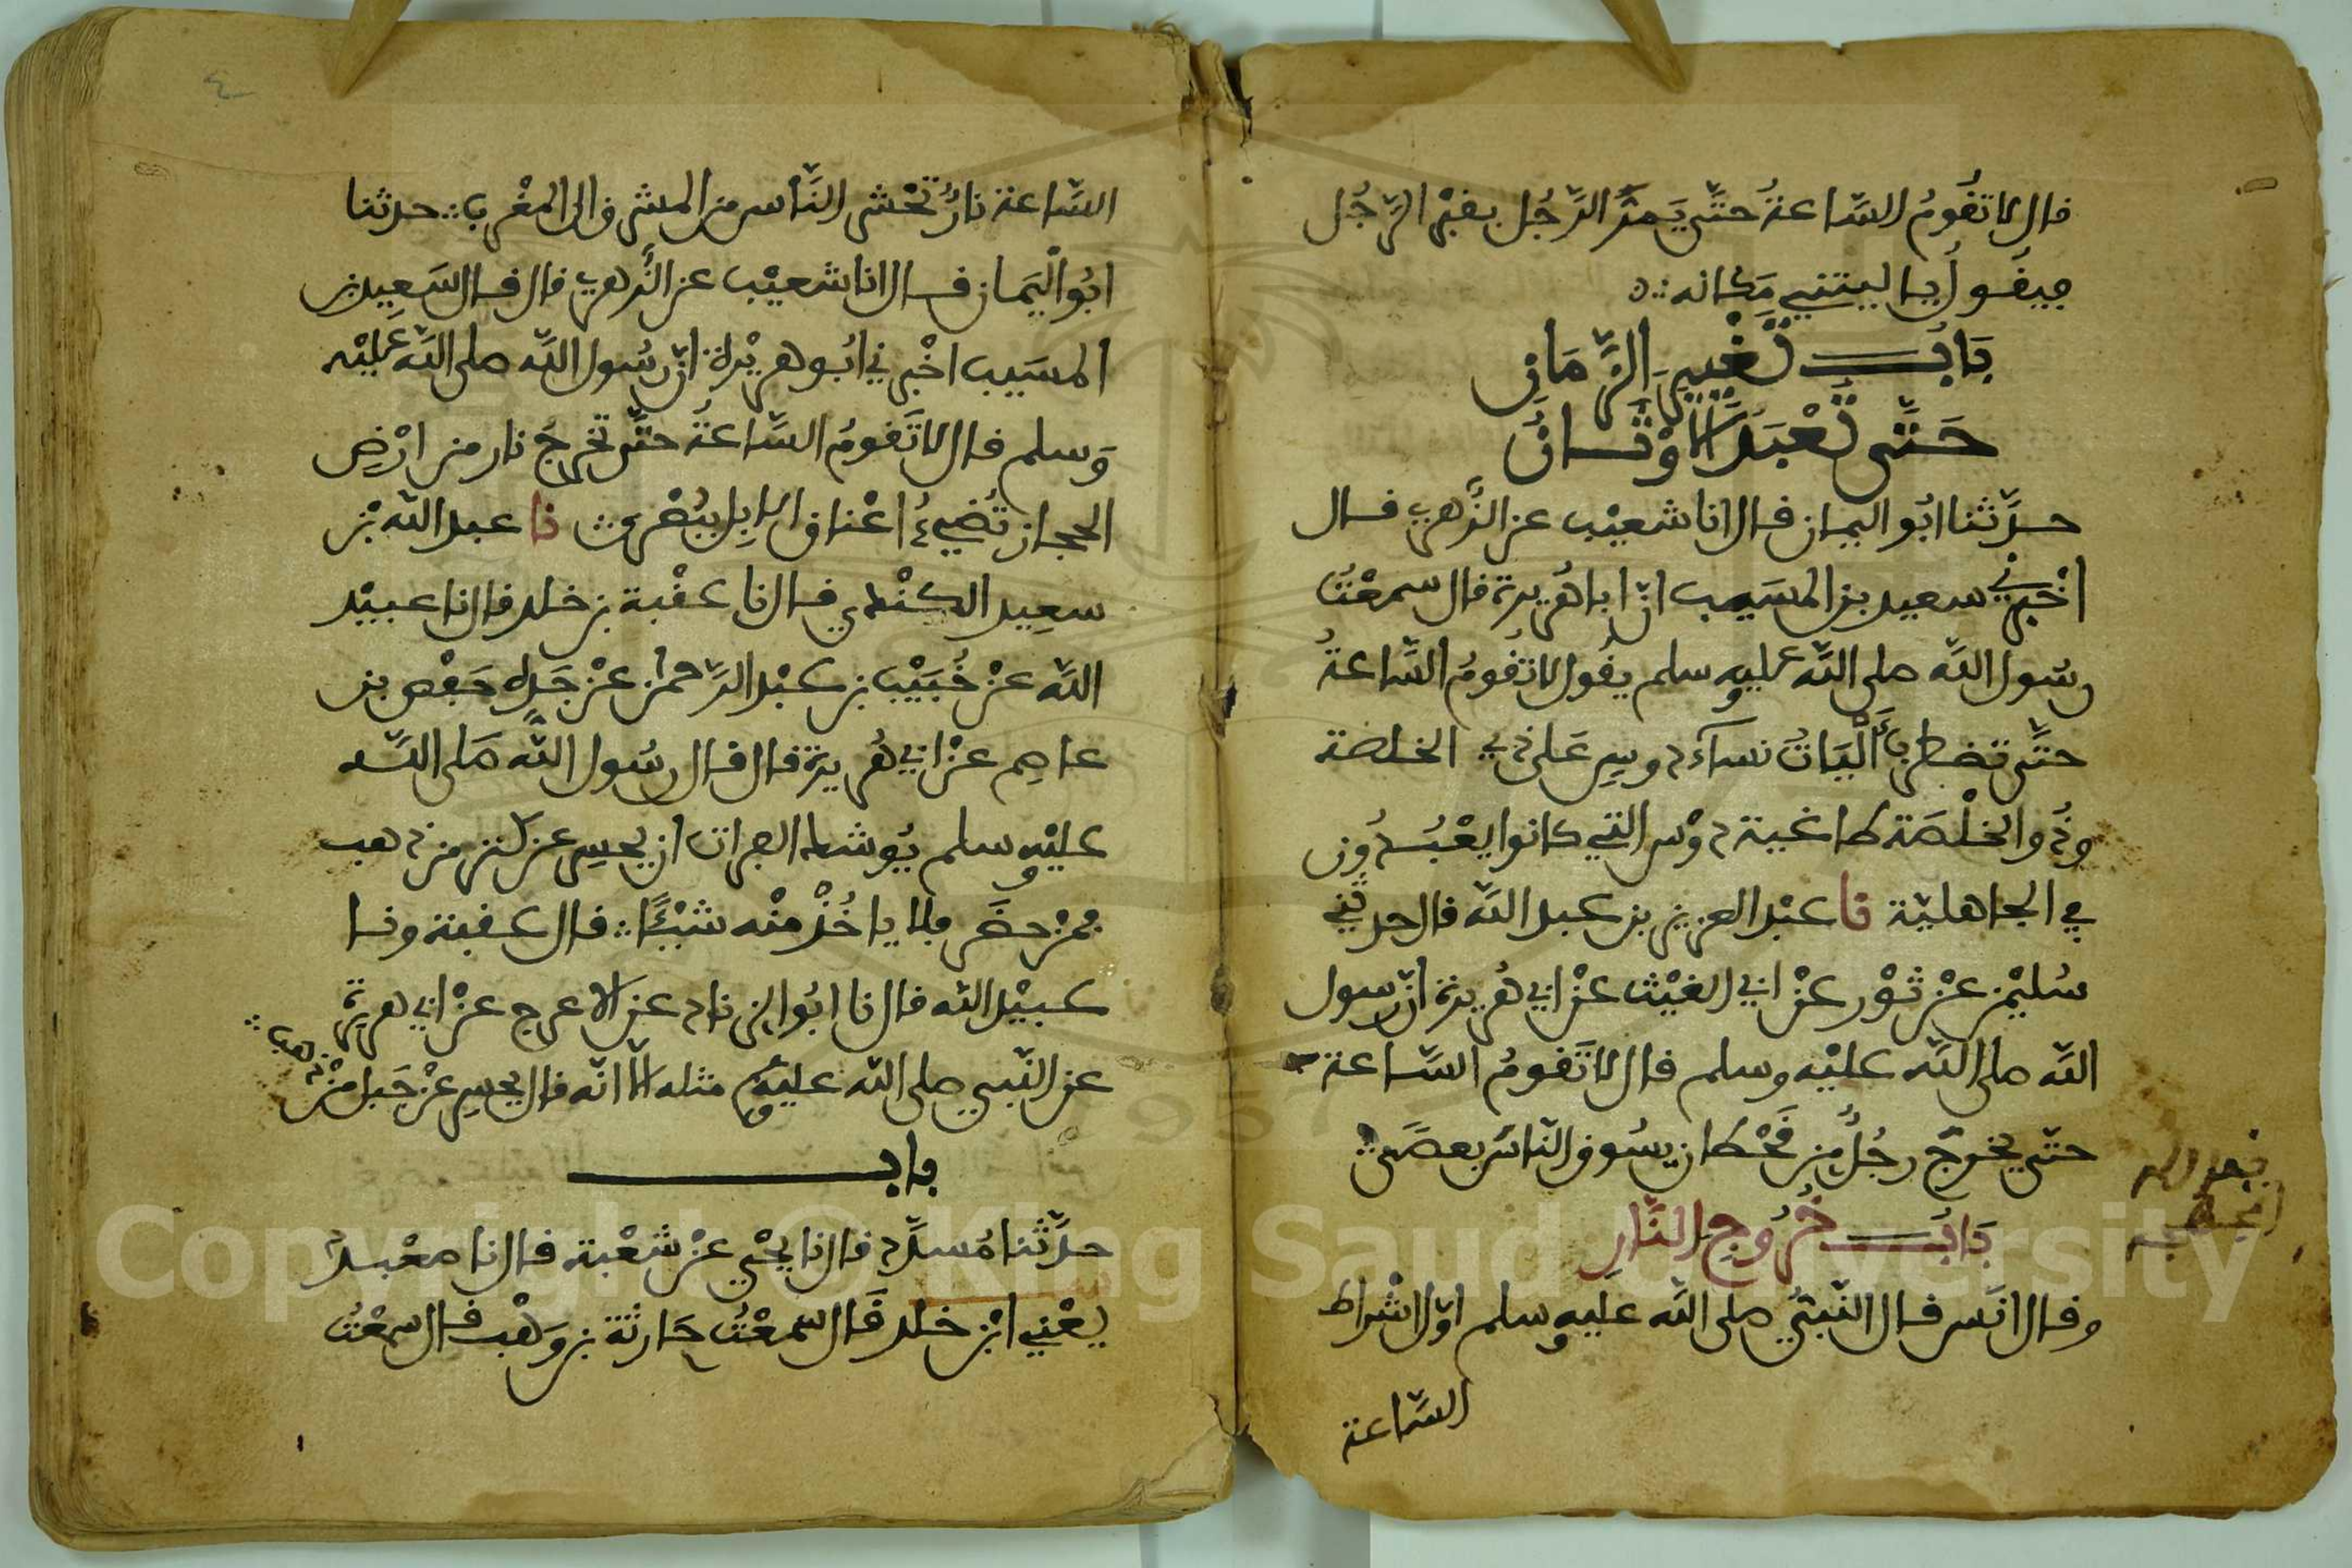 قال لا تقُومُ السَّاعةُ حتَّى يَمرَّ الرَّجُل بقبْر الرَّجُل
فيقُولُ يا ليتني مَكانه
بَابُ تَغْيِيرِ الزَّمَانِ
حَتَّى تُعْبَدَ الاوْثَانُ
حدَّثنا ابُو اليمان قال انا شعيْب عن الزُّهري قال
اخْبرني سعيد بن المسَيب انّ ابا هُريرة قال سمعْتُ
رسُول اللَّه صلى اللَّه عليه وسلم يقُول لا تقُومُ السَّاعةُ
حتَّى تضطرب ألْيَاتُ نساء دوسٍ عَلى ذي الخلصة
وذُو الخلْصَة طاغية دوْس التي كانوا يعْبُدُون
في الجاهليّة نا عبْد العزيز بن عبد اللَّه قال حدثني
سُليْمن عنْ ثوْر عنْ ابي الغيْث عنْ ابي هُريرة انّ رسول
اللَّه صلى اللَّه عليْه وسلم قال لا تَقومُ السَّاعة
حتّى يخرجَ رجُلٌ من قَحْطان يسُوق النّاسَ بعصَاه
بَابُ خُرُوجِ النَّارِ
وقال انَس قال النّبيُّ صلى اللَّه عليه وسلم اوّل اشْراط
السَّاعة
السَّاعة نارٌ تحْشر النَّاس من المشرق الى المغْرب حدثنا
ابُو الْيَمان قال انا شعيْب عن الزُّهري قال قال سَعِيد بن
المسَيب اخْبرني ابُو هريْرة انّ رسُول اللَّه صلى اللَّه عليْه
وَسلم قال لا تَقومُ السَّاعةُ حتَّى تخرجَ نار من ارْضِ
الحجاز تُضيءُ اعْناق الابِل ببُصْرى نا عبد اللَّه بْن
سعِيد الكنْدي قال نا عقْبة بن خلد قال نا عبيْد
اللَّه عنْ خُبَيْب بن عبْد الرَّحمن عنْ جَدِّه حَفْص بن
عاصِم عنْ ابي هُريرة قال قال رسُول اللَّه صَلى اللَّه
عليْه وسلم يُوشك الفرات ان يحسِر عن كنز من ذهب
فمنْ حضَر فلا ياخُذْ منْه شيْئًا قال عقبة ونا
عبيْد اللَّه قال نا ابُو الزناد عن الاعرج عنْ ابي هريرة
عن النّبي صلى اللَّه عليْه وسلم مثله الّا انّه قال يحسِر عنْ جَبل منْ ذهب
باب
حدَّثنا مُسدَّد قال نا يحْيى عنْ شعْبة قال نا معْبدٌ
يعْني ابْن خلد قَال سمعْتُ حَارثة بن وَهْب قال سمعْتُ